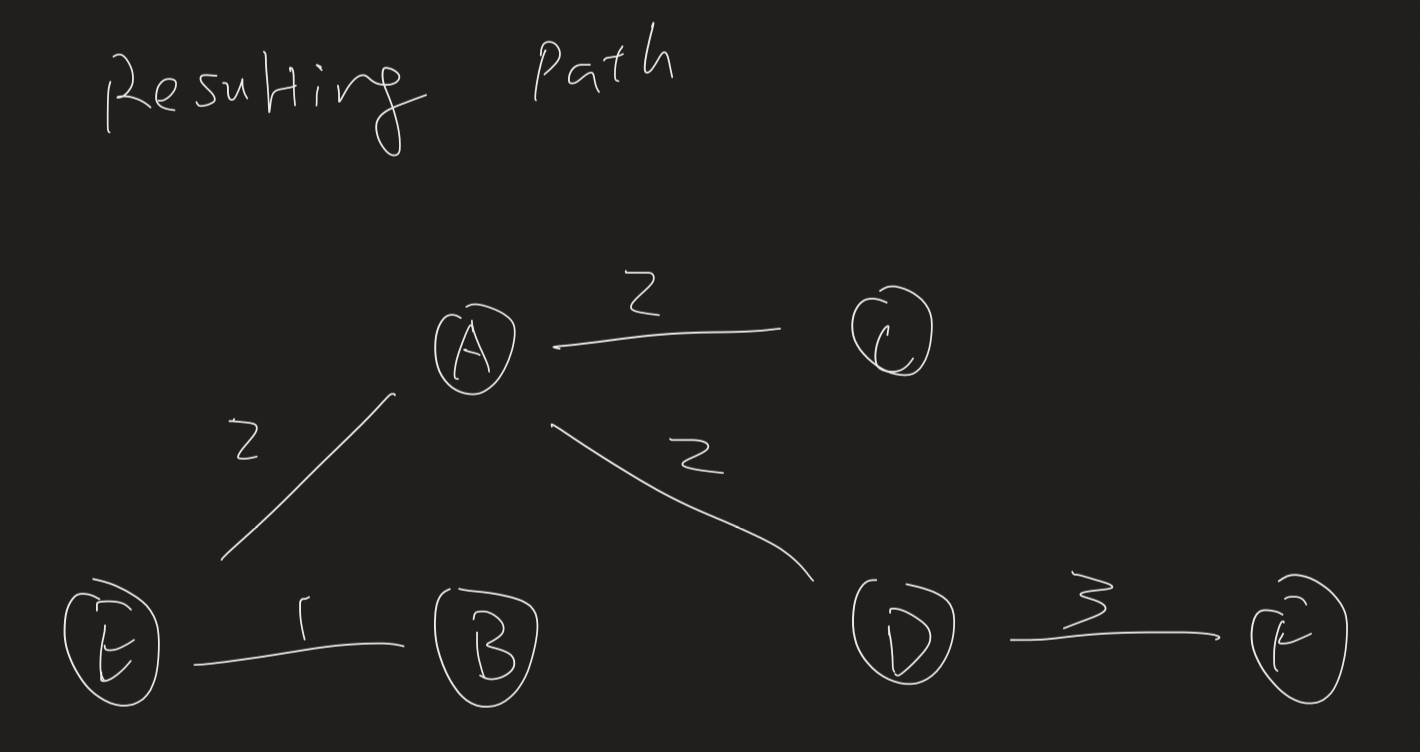 Resulting Path
2
A
C
2
2
E
1
B
D
3
F